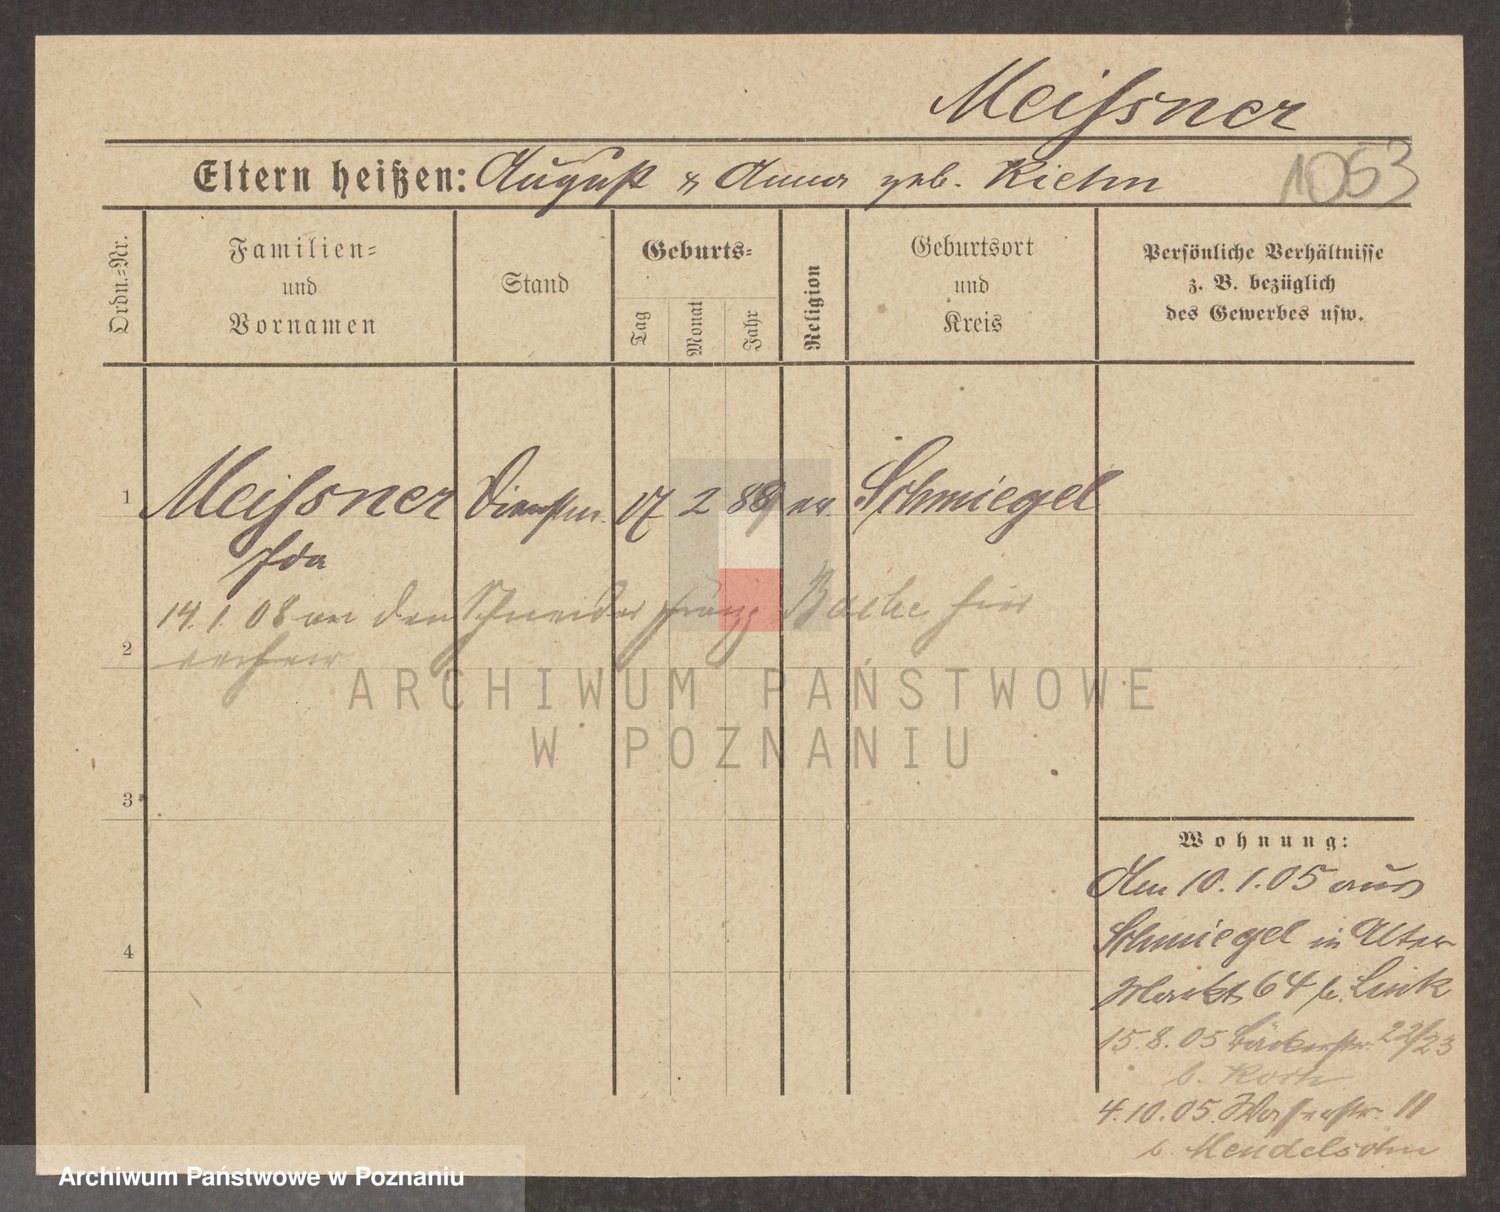 Meissner
Eltern heißen: August & Anna geb. Kiehn
1053
Ordn.=Nr.
Familien=
und
Vornamen
Stand
Geburts=
Tag
Monat
Jahr
Religion
Geburtsort
und
Kreis
Persönliche Verhältnisse
z. B. bezüglich
des Gewerbes usw.
1 Meissner Dienstm. 17 2 88 ev. Schmiegel
Ida
14.1.08 an den Schneider Franz Bache hier
verheir
2
ARCHIWUM PAŃSTWOWE
W POZNANIU
3
Wohnung:
Am 10.1.05 aus
4 Schmiegel in Alter
Markt 64 b. Link
15.8.05 Bäckerstr. 22/23
b. Koch
4.10.05. Wasserstr. 11
b. Mendelsohn
Archiwum Państwowe w Poznaniu